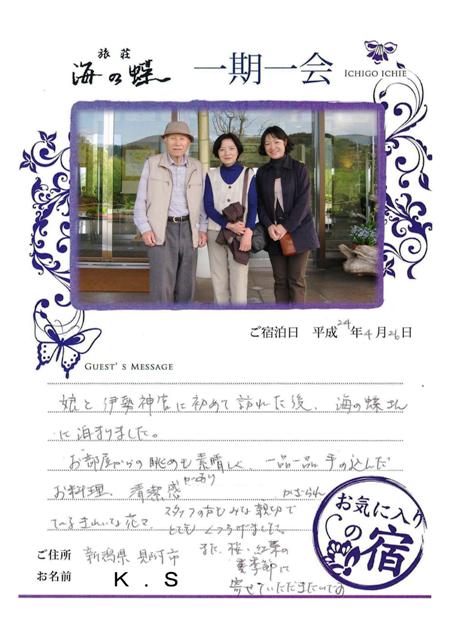 旅荘
海の蝶
一期一会
ICHIGO ICHIE
ご宿泊日 平成24年4月26日
GUEST'S MESSAGE
娘と伊勢神宮に初めて訪れた後、海の蝶さん
に泊まりました。
お部屋からの眺めも素晴しく、一品一品手の込んだ
お料理、清潔感があり かざられ
ているきれいな花々、スタッフの方もみな親切で
とてもくつろげました。
また、桜・紅葉の
季節に
寄せていただきたいです
お気に入り
の
宿
ご住所 新潟県 見附市
お名前 K.S